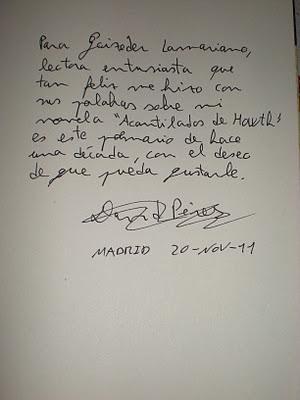 Para Goizeder Lamariano,
lectora entusiasta que
tan feliz me hizo con
sus palabras sobre mi
novela "Acantilados de Howth"
es este poemario de hace
una década, con el deseo
de que pueda gustarle.
David Pérez
MADRID 20-NOV-11